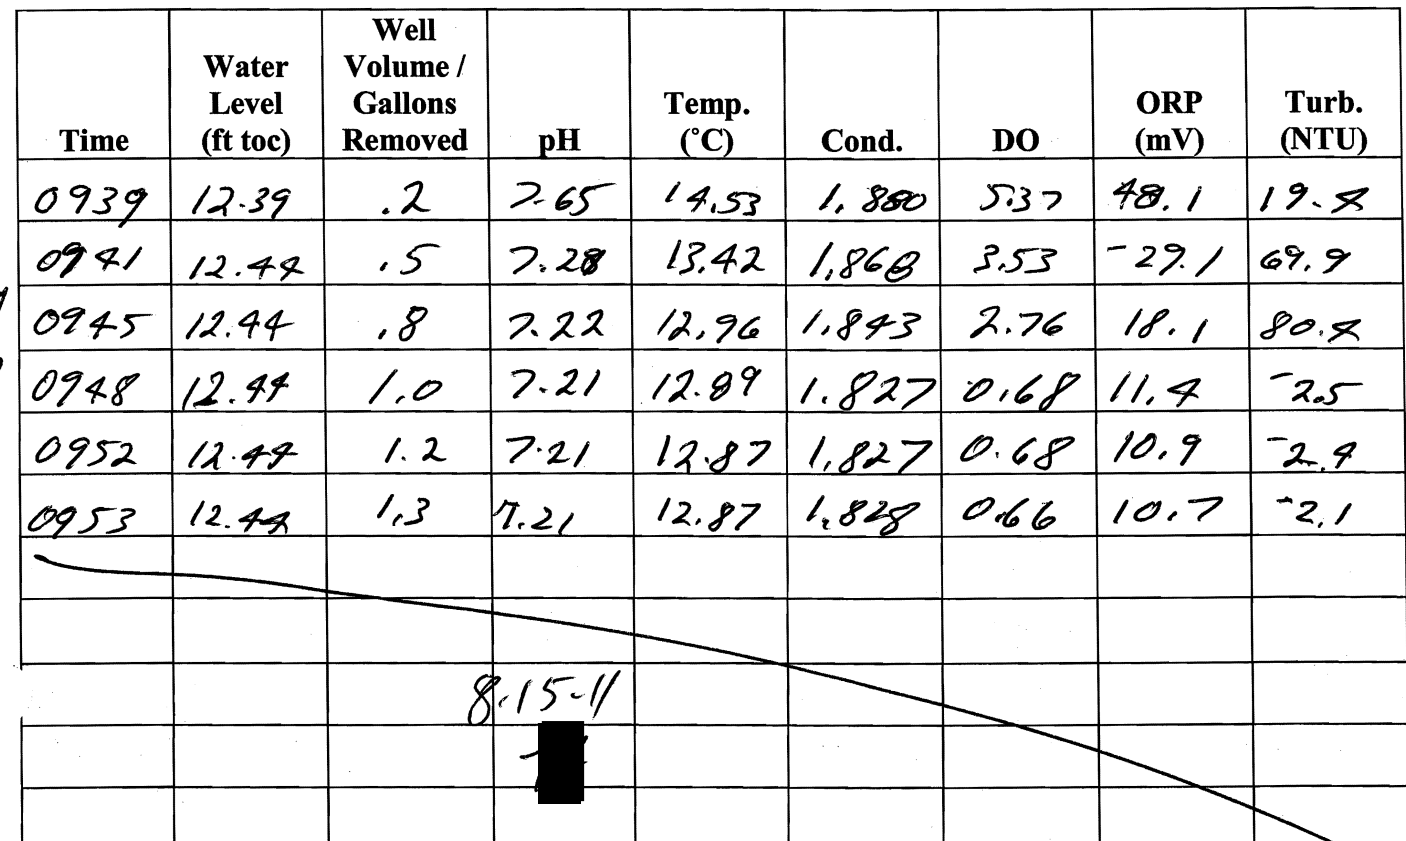 Time Water Level (ft toc) Well Volume / Gallons Removed pH Temp. (°C) Cond. DO ORP (mV) Turb. (NTU)
0939 12.39 .2 7.65 14.53 1.880 5.37 48.1 19.4
0941 12.44 .5 7.28 13.42 1.868 3.53 -29.1 69.9
0945 12.44 .8 7.22 12.96 1.843 2.76 18.1 80.4
0948 12.44 1.0 7.21 12.89 1.827 0.68 11.4 -2.5
0952 12.44 1.2 7.21 12.87 1.827 0.68 10.9 -2.4
0953 12.44 1.3 7.21 12.87 1.828 0.66 10.7 -2.1
8-15-11